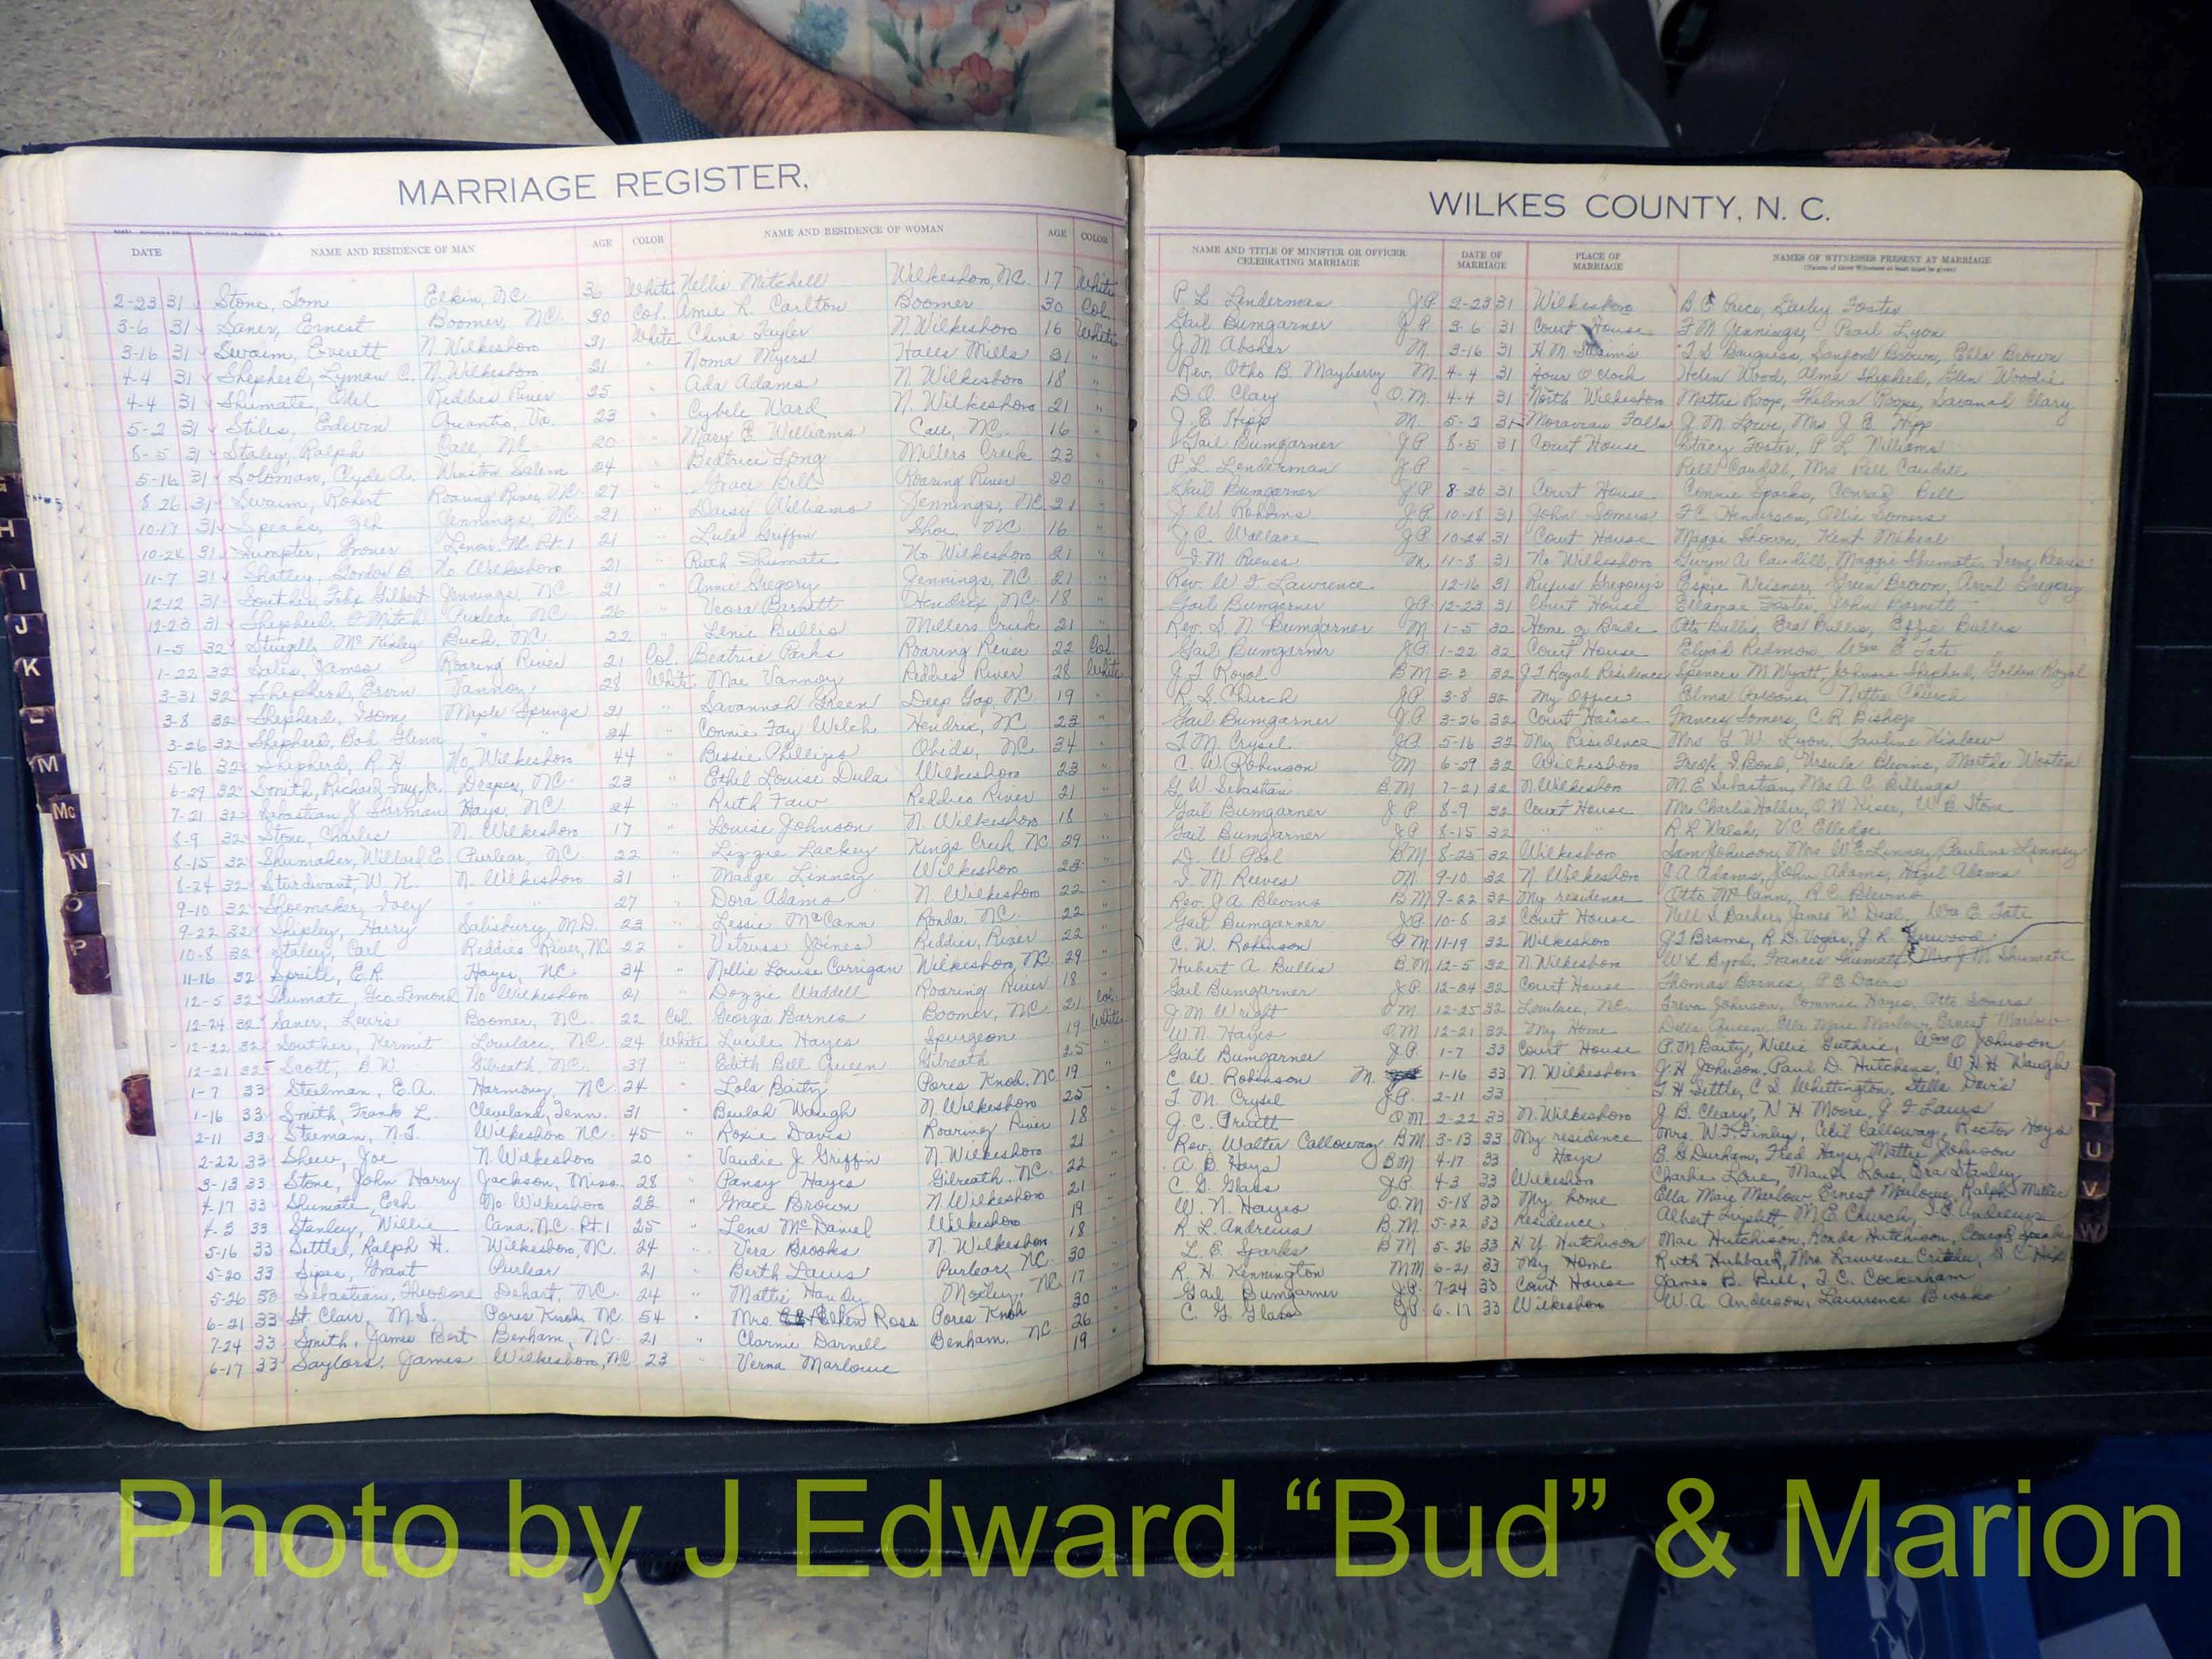 MARRIAGE REGISTER,
DATE NAME AND RESIDENCE OF MAN AGE COLOR NAME AND RESIDENCE OF WOMAN AGE COLOR
2-23 31 Stone, Tom Elkin, NC 36 White Nellie Mitchell Wilkesboro, NC. 17 White
3-6 31 Saner, Ernest Boomer, NC. 30 Col. Amie L. Carlton Boomer 30 Col.
3-16 31 Swaim, Everett N. Wilkesboro 21 White China Taylor N. Wilkesboro 16 White
4-4 31 Shepherd, Lyman C. N. Wilkesboro 21 " Noma Myers Halls Mills 21 "
4-4 31 Shumate, Odel Reddies River 25 Ada Adams N. Wilkesboro 18 "
5-2 31 Stiles, Edwin Quantio, Va. 23 " Cybele Ward N. Wilkesboro 21 "
8-5 31 Staley, Ralph Call, NC 20 Mary E. Williams Call, NC. 16 "
5-16 31 Soloman, Clyde A. Winston Salem 24 " Beatrice Long Millers Creek 23 "
8-26 31 Swaim, Robert Roaring River, NC. 27 " Grace Bell Roaring River 20 "
10-17 31 Speaks, Jennings, NC. 21 " Daisy Williams Jennings, NC 21 "
10-24 31 Sumpter, Grover Lenoir, NC Rt. 1 21 " Lula Griffin NC 16 "
11-7 31 Shatley, Gordon B. No Wilkesboro 21 " Ruth Shumate No Wilkesboro 21 "
12-12 31 Souther, Gilbert Jennings, NC. 21 " Annie Gregory Jennings, NC. 21 "
12-23 31 Shepherd, Mitch Purlear, NC. 26 " Veora Barnett Hendrix, NC. 18 "
1-5 32 Sturgill, McKinley Buck, NC. 22 " Lenie Bullis Millers Creek 21 "
1-22 32 Sales, James Roaring River 21 Col. Beatrice Parks Roaring River 22 Col.
3-31 32 Shepherd, Ervin Vannoy 28 White Mae Vannoy Reddies River 28 White
3-8 32 Shepherd, Isom Maple Springs 21 " Savannah Green Deep Gap, NC. 19 "
3-26 32 Shepherd, Bob Glenn " " 24 Connie Fay Welch Hendrix, NC 23 "
5-16 32 Shepherd, R. No Wilkesboro 44 " Bessie Phillips Obids, NC 34 "
6-29 32 Smith, Richard Draper, NC. 23 " Ethel Louise Dula Wilkesboro 23 "
7-21 32 Sebastian, J. Sherman Hays, NC. 24 " Ruth Faw Reddies River 21 "
8-9 32 Stone, Charles N. Wilkesboro 17 " Louise Johnson N. Wilkesboro 18 "
8-15 32 Shumaker, Willard E. Purlear, NC 22 " Lizzie Lackey Kings Creek, NC. 29 "
8-24 32 Sturdivant, W. K. N. Wilkesboro 31 " Madge Linney Wilkesboro 23 "
9-10 32 Shoemaker, Ivey " " 27 Dora Adams N. Wilkesboro 22 "
9-22 32 Shipley, Harry Salisbury, M.D. 23 " Lessie McCann Ronda, NC. 22 "
10-8 32 Staley, Carl Reddies River, NC. 22 " Joines Reddies River 22 "
11-16 32 Spruill, E.R. Hayes, NC 34 " Nellie Louise Carrigan Wilkesboro, NC. 29 "
12-5 32 Shumate, Geo Lemond No Wilkesboro 21 " Dozzie Waddell Roaring River 18 "
12-24 32 Saner, Lewis Boomer, NC. 22 Col. Georgia Barnes Boomer, NC. 21 Col.
12-22 32 Souther, Kermit Lovelace, NC. 24 White Lucile Hayes Spurgeon 19 White
12-21 32 Scott, B.W. Gilreath, NC. 39 " Edith Bell Queen Gilreath 25 "
1-7 33 Steelman, E.A. Harmony, NC. 24 " Lola Baity Pores Knob, NC 19
1-16 33 Smith, Frank L. Cleveland, Tenn. 31 " Beulah Waugh N. Wilkesboro 25 "
2-11 33 Steeman, N.T. Wilkesboro NC. 45 " Roxie Davis Roaring River 18
2-22 33 Shew, Joe N. Wilkesboro 20 " Vaudie J. Griffin N. Wilkesboro 21 "
3-13 33 Stone, John Harry Jackson, Miss. 28 " Pansy Hayes Gilreath, NC. 22 "
4-17 33 Shumate, Esh No. Wilkesboro 23 " Grace Brown N. Wilkesboro 21 "
4-3 33 Stanley, Willie Cana, NC. Rt. 1 25 " Lena McDaniel Wilkesboro 19 "
5-16 33 Settle, Ralph H. Wilkesboro, NC. 24 " Vera Brooks N. Wilkesboro 18 "
5-20 33 Sipes, Grant Purlear 21 " Berth Laws Purlear, NC. 30 "
5-26 33 Sebastian, Theodore Dehart, NC. 24 " Mattie Handy Moxley, NC. 17 "
6-21 33 St. Clair, M.S. Pores Knob, NC. 54 " Mrs. Ellen Ross Pores Knob 30
7-24 33 Smith, James Bert Benham, NC. 21 " Clarnie Darnell Benham, NC. 26 "
6-17 33 Saylors, James Wilkesboro, NC 23 " Verna Marlowe 19 "
WILKES COUNTY, N. C.
NAME AND TITLE OF MINISTER OR OFFICER CELEBRATING MARRIAGE DATE OF MARRIAGE PLACE OF MARRIAGE NAMES OF WITNESSES PRESENT AT MARRIAGE
(Names of three Witnesses at least must be given)
P. L. Lenderman J.P. 2-23 31 Wilkesboro B. C. Price, Foster
Gail Bumgarner J.P. 3-6 31 Court House F. M. Jennings, Pearl Lyon
J. M. Absher M. 3-16 31 H. M. Swaim's T. S. Bauguess, Sanford Brown, Ella Brown
Rev. Otho B. Mayberry M. 4-4 31 Four O'clock Helen Wood, Alma Shepherd, Glen Woodie
D. O. Clary O.M. 4-4 31 North Wilkesboro Mattie Roop, Thelma Roope, Savanah Clary
J. E. Hipp M. 5-3 31 Moravian Falls J. M. Lowe, Mrs J. E. Hipp
Gail Bumgarner J.P. 8-5 31 Court House Stacy Foster, P. L. Williams
P. L. Lenderman J.P. - - - Rell Caudill, Mrs Rell Caudill
Gail Bumgarner J.P. 8-26 31 Court House Connie Sparks, Conrad Bell
J. W. Robbins J.P. 10-18 31 John Somers' F. C. Henderson, Ollie Somers
J. C. Wallace J.P. 10-24 31 Court House Maggie Kent Mikeal
I. M. Reeves M. 11-8 31 No Wilkesboro Gwyn A. Caudill, Maggie Shumate, Irene Reeves
Rev. W. F. Lawrence 12-16 31 Rufus Gregory's Espie Weisner, Green Brown, Arvil Gregory
Gail Bumgarner J.P. 12-23 31 Court House Ellamae Foster, John Barnett
Rev. S. N. Bumgarner M 1-5 32 Home of Bride Otto Bullis, Bullis, Effie Bullis
Gail Bumgarner J.P. 1-22 32 Court House Elijah Redmon, Wm E. Tate
J. T. Royal B M 3-3 32 J. T. Royal Residence Spencer M Wyatt, Johnsie Shepherd, Golden Royal
R. S. Church J.P. 3-8 32 My Office Elma Parsons, Nettie Church
Gail Bumgarner J.P. 3-26 32 Court House Frances Somers, C. R. Bishop
T. M. Crysel J.P. 5-16 32 My Residence Mrs. F. W. Lyon, Pauline Kinlaw
C. W. Robinson M 6-29 32 Wilkesboro Fred I. Bond, Ursula Blevins, Martha Wooten
G. W. Sebastian B.M. 7-21 32 N. Wilkesboro M. E. Sebastian, Mrs A. C. Billings
Gail Bumgarner J P. 8-9 32 Court House Mr. Charlie Holder, O. W. Kiser, W. E. Stone
Gail Bumgarner J.P. 8-15 32 " " R. L. Walsh, V.C. Elledge
D. W. Pool B.M. 8-25 32 Wilkesboro Sam Johnson, Mrs. W. E. Linney, Pauline Linney
I. M. Reeves M. 9-10 32 N. Wilkesboro J. A. Adams, John Adams, Hazel Adams
Rev. J. A. Blevins B M 9-22 32 My residence Otto McCann, R. C. Blevins
Gail Bumgarner J.P. 10-8 32 Court House Nell S. Barker, James W. Deal, Wm E. Tate
C. W. Robinson B M 11-19 32 Wilkesboro J. T. Brame, R. D. Vogler,
Hubert A. Bullis B.M. 12-5 32 N. Wilkesboro W. L. Byrd, Francis Shumate, Mrs J. M. Shumate
Gail Bumgarner J.P. 12-24 32 Court House Thomas Barnes, P. E. Davis
J. M. Wright O M. 12-25 32 Lovelace, NC. Treva Johnson, Commie Hayes, Otto Somers
W. N. Hayes O.M. 12-21 32 My Home Della Queen, Ella Mae Marlow, Ernest Marlow
Gail Bumgarner J.P. 1-7 33 Court House P. M Baity, Willie Guthrie, Wm O. Johnson
C. W. Robinson M. 1-16 33 N. Wilkesboro J. H. Johnson, Paul D. Hutchens, W. H. H. Waugh
T. M. Crysel J.P. 2-11 33 T. H. Settle, C. S. Whittington, Stella Davis
J. C. Pruitt O.M. 2-22 33 N. Wilkesboro J. B. Cleary, N. H. Moore, J. F. Laws
Rev. Walter Calloway B.M 3-13 33 My residence Mrs. W. F. Finley, Cecil Calloway, Rector Hays
A. B. Hays B.M 4-17 33 Hays E. G. Durham, Fred Hayes, Mattie Johnson
C. G. Glass J.P. 4-3 33 Wilkesboro Charlie Love, Maude Love, Ora Stanley
W. N. Hayes O.M. 5-18 33 My home Ella Mae Marlow, Ernest Marlowe, Ralph Miller
R. L. Andrews B.M. 5-22 33 Residence Albert Triplett, M. E. Church, Andrews
L. E. Sparks B.M. 5-26 33 H. Y. Hutchison Mae Hutchison, Ronda Hutchison,
R. H. Kennington M M 6-21 33 My Home Ruth Hubbard, Mrs. Lawrence Critcher,
Gail Bumgarner J.P. 7-24 33 Court House James B. Bell, T. C. Cockerham
C. G. Glass J.P. 6-17 33 Wilkesboro W. A. Anderson, Lawrence Brooks
H
I
J
K
L
M
Mc
N
O
P
T
U
V
W
Photo by J Edward “Bud” & Marion